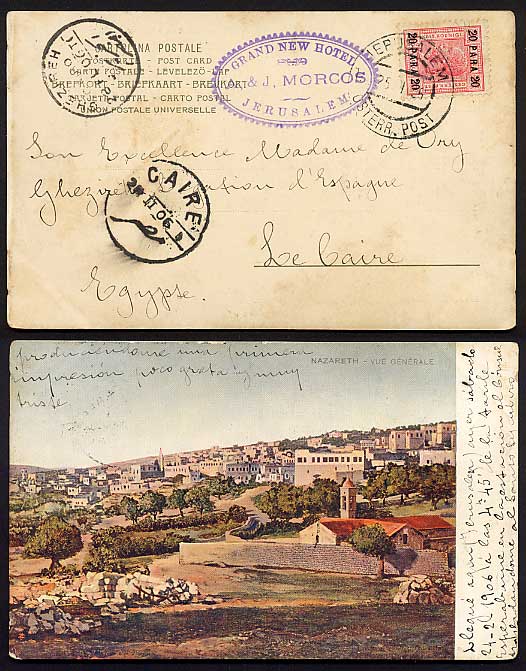 CARTOLINA POSTALE
POSTKARTE - POST CARD
CARTE POSTALE - LEVELEZŐ-LAP
BREFKORT - BRIEFKAART - BREVKORT
TARJETA POSTAL - CARTÃO POSTAL
UNION POSTALE UNIVERSELLE
GRAND NEW HOTEL
A. & J. MORCOS
JERUSALEM
20 PARA 20
20 PARA 20
JERUSALEM
OESTERR. POST
CAIRE
II 06
Son Excellence Madame de Ory
Ghezireh d'Espagne
Le Caire
Egypte.
produciendome una primera
impresión poco grata y muy
triste
NAZARETH - VUE GÉNÉRALE
Llegué aquí (Jerusalen) ayer sabado
24-2-1906 a las 4.45 de la tarde